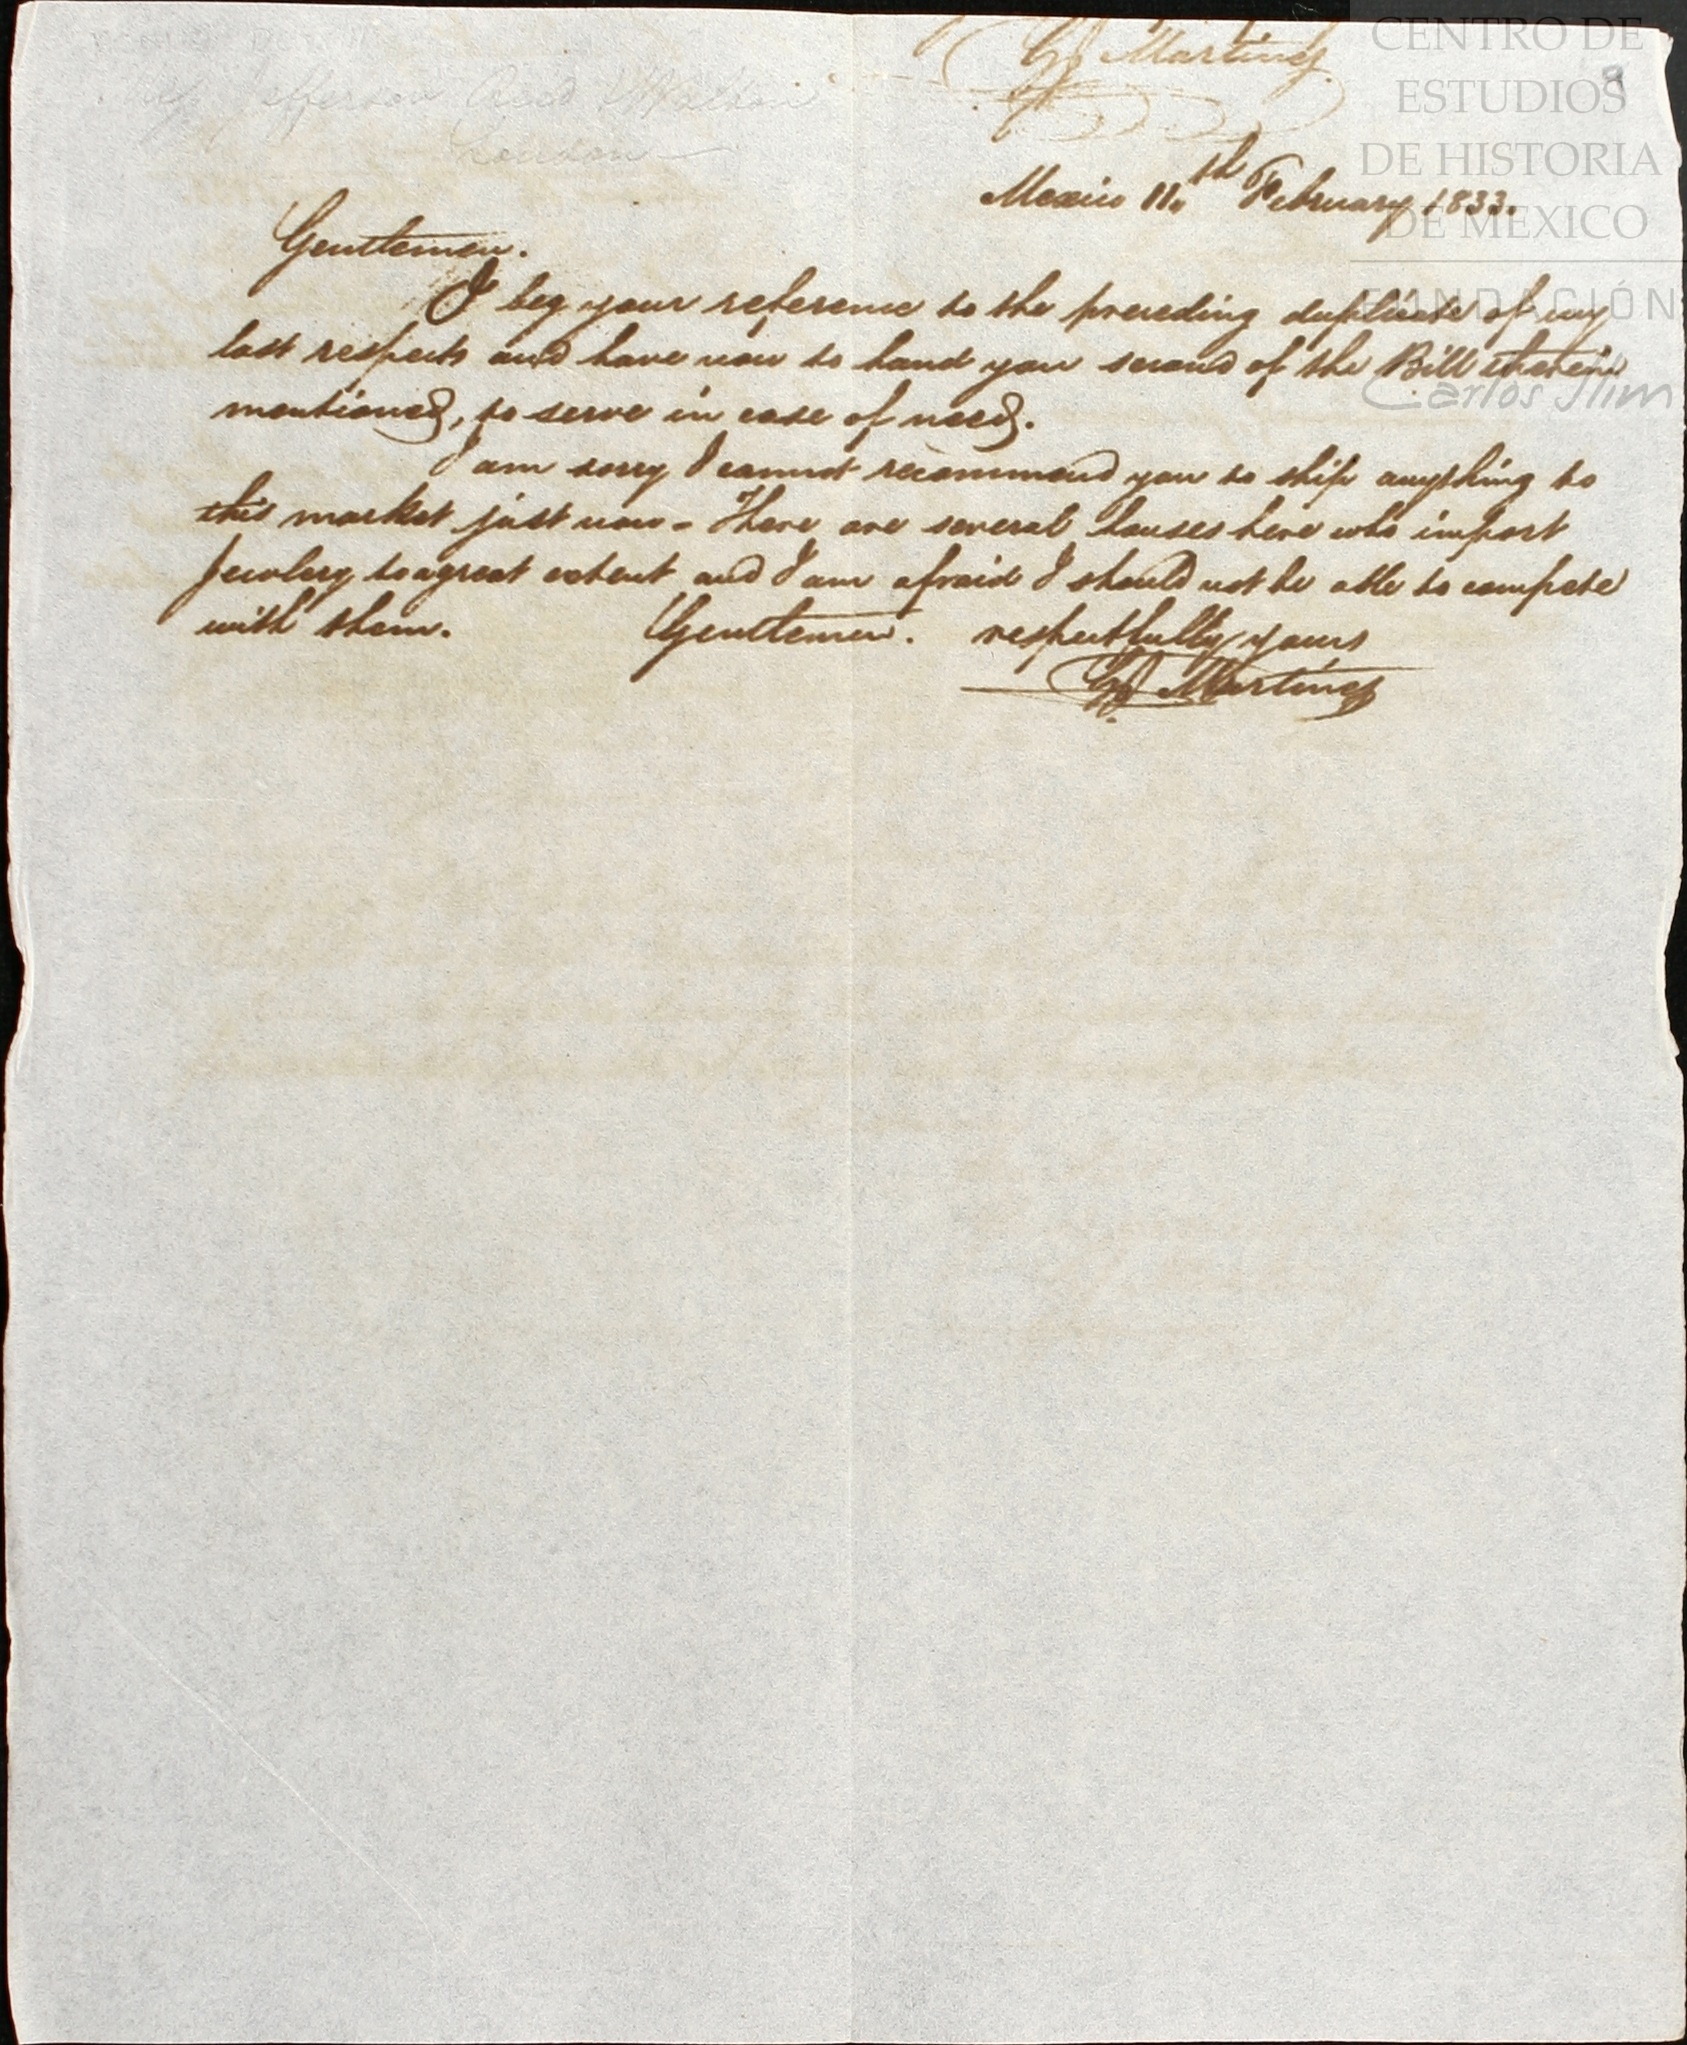 Martinez
Jefferson Reed & Watson
London
Mexico 11th February 1833.
Gentlemen.
I beg your reference to the preceding duplicate of my
last respects and have now to hand you second of the Bill therein
mentioned, to serve in case of need.
I am sorry I cannot recommend you to ship anything to
this market just now - There are several houses here who import
Jewelery to a great extent and I am afraid I should not be able to compete
with them. Gentlemen. respectfully yours
Martinez
CENTRO DE
ESTUDIOS
DE HISTORIA
DE MEXICO
FUNDACIÓN
Carlos Slim